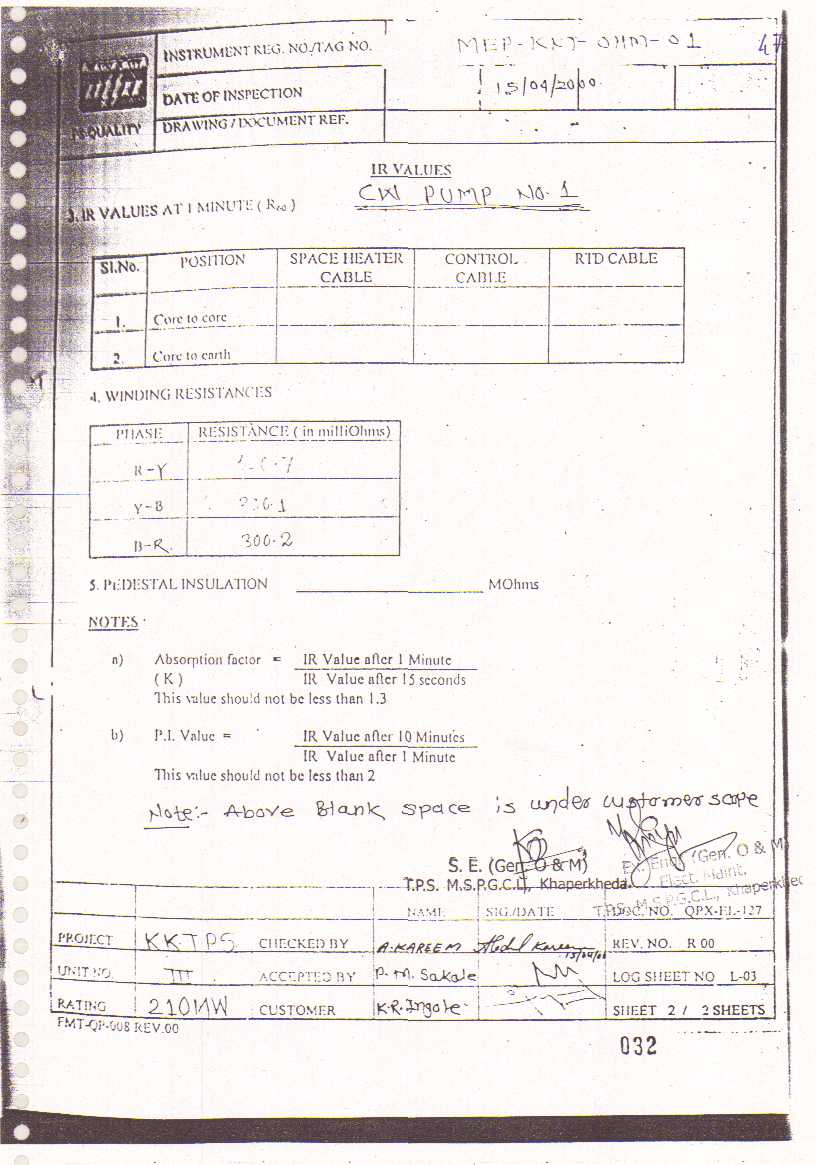 47
INSTRUMENT REG. NO./TAG NO. MEP-KKT-OHM-01
DATE OF INSPECTION 15/04/2000
DRAWING / DOCUMENT REF. -
QUALITY
IR VALUES
CW PUMP NO. 1
3. IR VALUES AT 1 MINUTE ( R60 )
Sl.No. POSITION SPACE HEATER CABLE CONTROL CABLE RTD CABLE
1. Core to core
2. Core to earth
4. WINDING RESISTANCES
PHASE RESISTANCE ( in milliOhms)
R-Y
Y-B
B-R. 300.2
5. PEDESTAL INSULATION MOhms
NOTES
a) Absorption factor = IR Value after 1 Minute
( K ) IR Value after 15 seconds
This value should not be less than 1.3
b) P.I. Value = IR Value after 10 Minutes
IR Value after 1 Minute
This value should not be less than 2
Note:- Above Blank space is under customer scope
S. E. (Gen. O & M)
T.P.S. M.S.P.G.C.L., Khaperkheda.
Ex. Engr. (Gen. O & M)
Elect. Maint.
T.P.S. M.S.P.G.C.L., Khaperkhed
NAME SIG./DATE DOC. NO. QPX-EL-127
PROJECT KK.TPS CHECKED BY A.KAREEM Abdul Kareem 15/04/00 REV. NO. R 00
UNIT NO. III ACCEPTED BY P. M. Sakale LOG SHEET NO L-03
RATING 210MW CUSTOMER K.R. Ingole SHEET 2 / 2 SHEETS
FMT-QP-008 REV.00
032